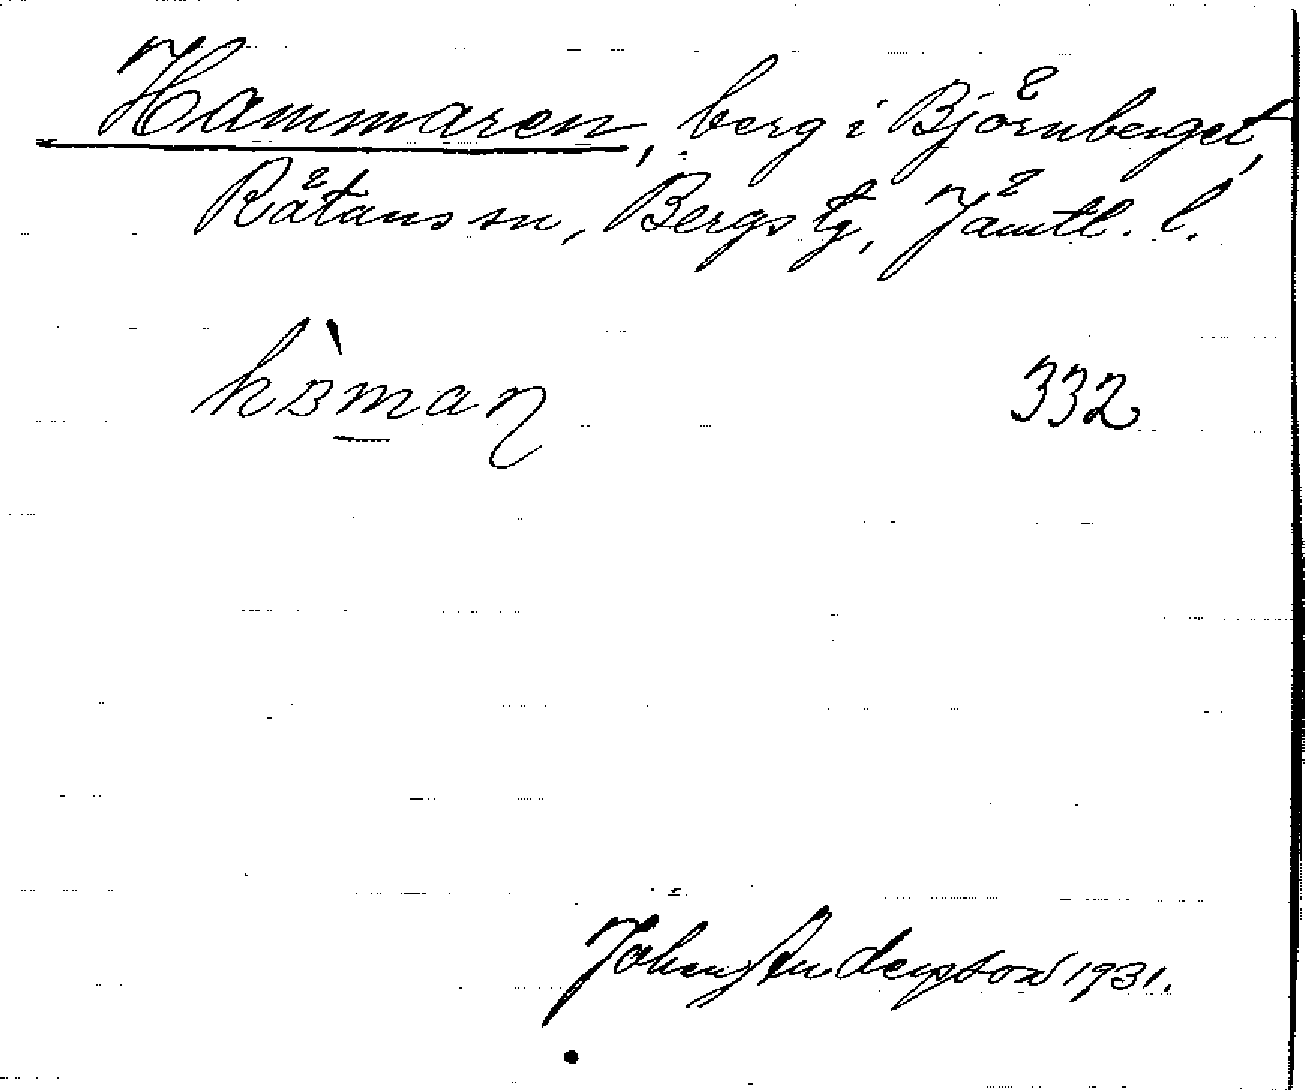 Hammaren, berg i Björnberget,
Rätans sn, Bergs tg, Jämtl. l.
332
Johan Anderson 1931.